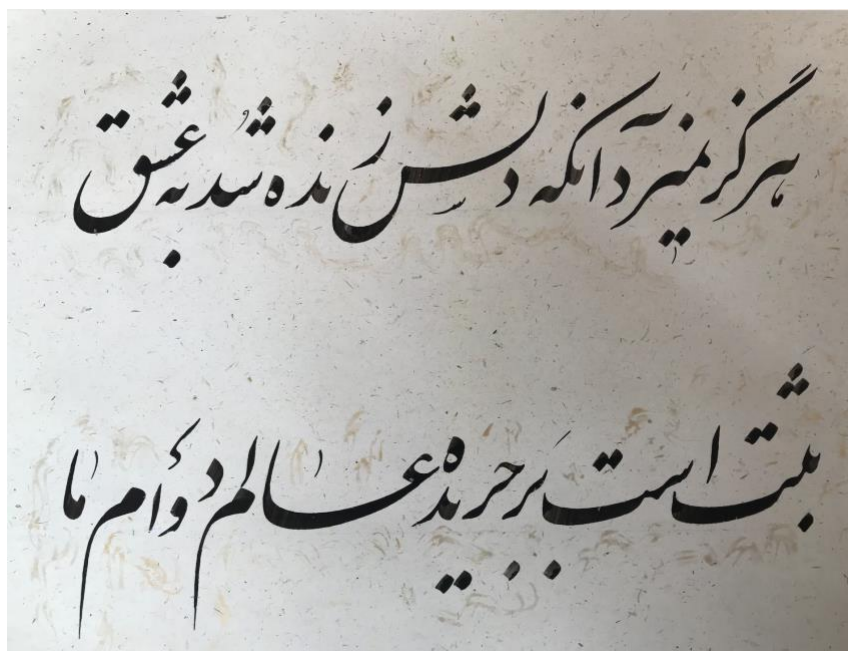 هرگز نمیرد آنکه دلش زنده شد به عشق
ثبت است بر جریده عالم دوام ما